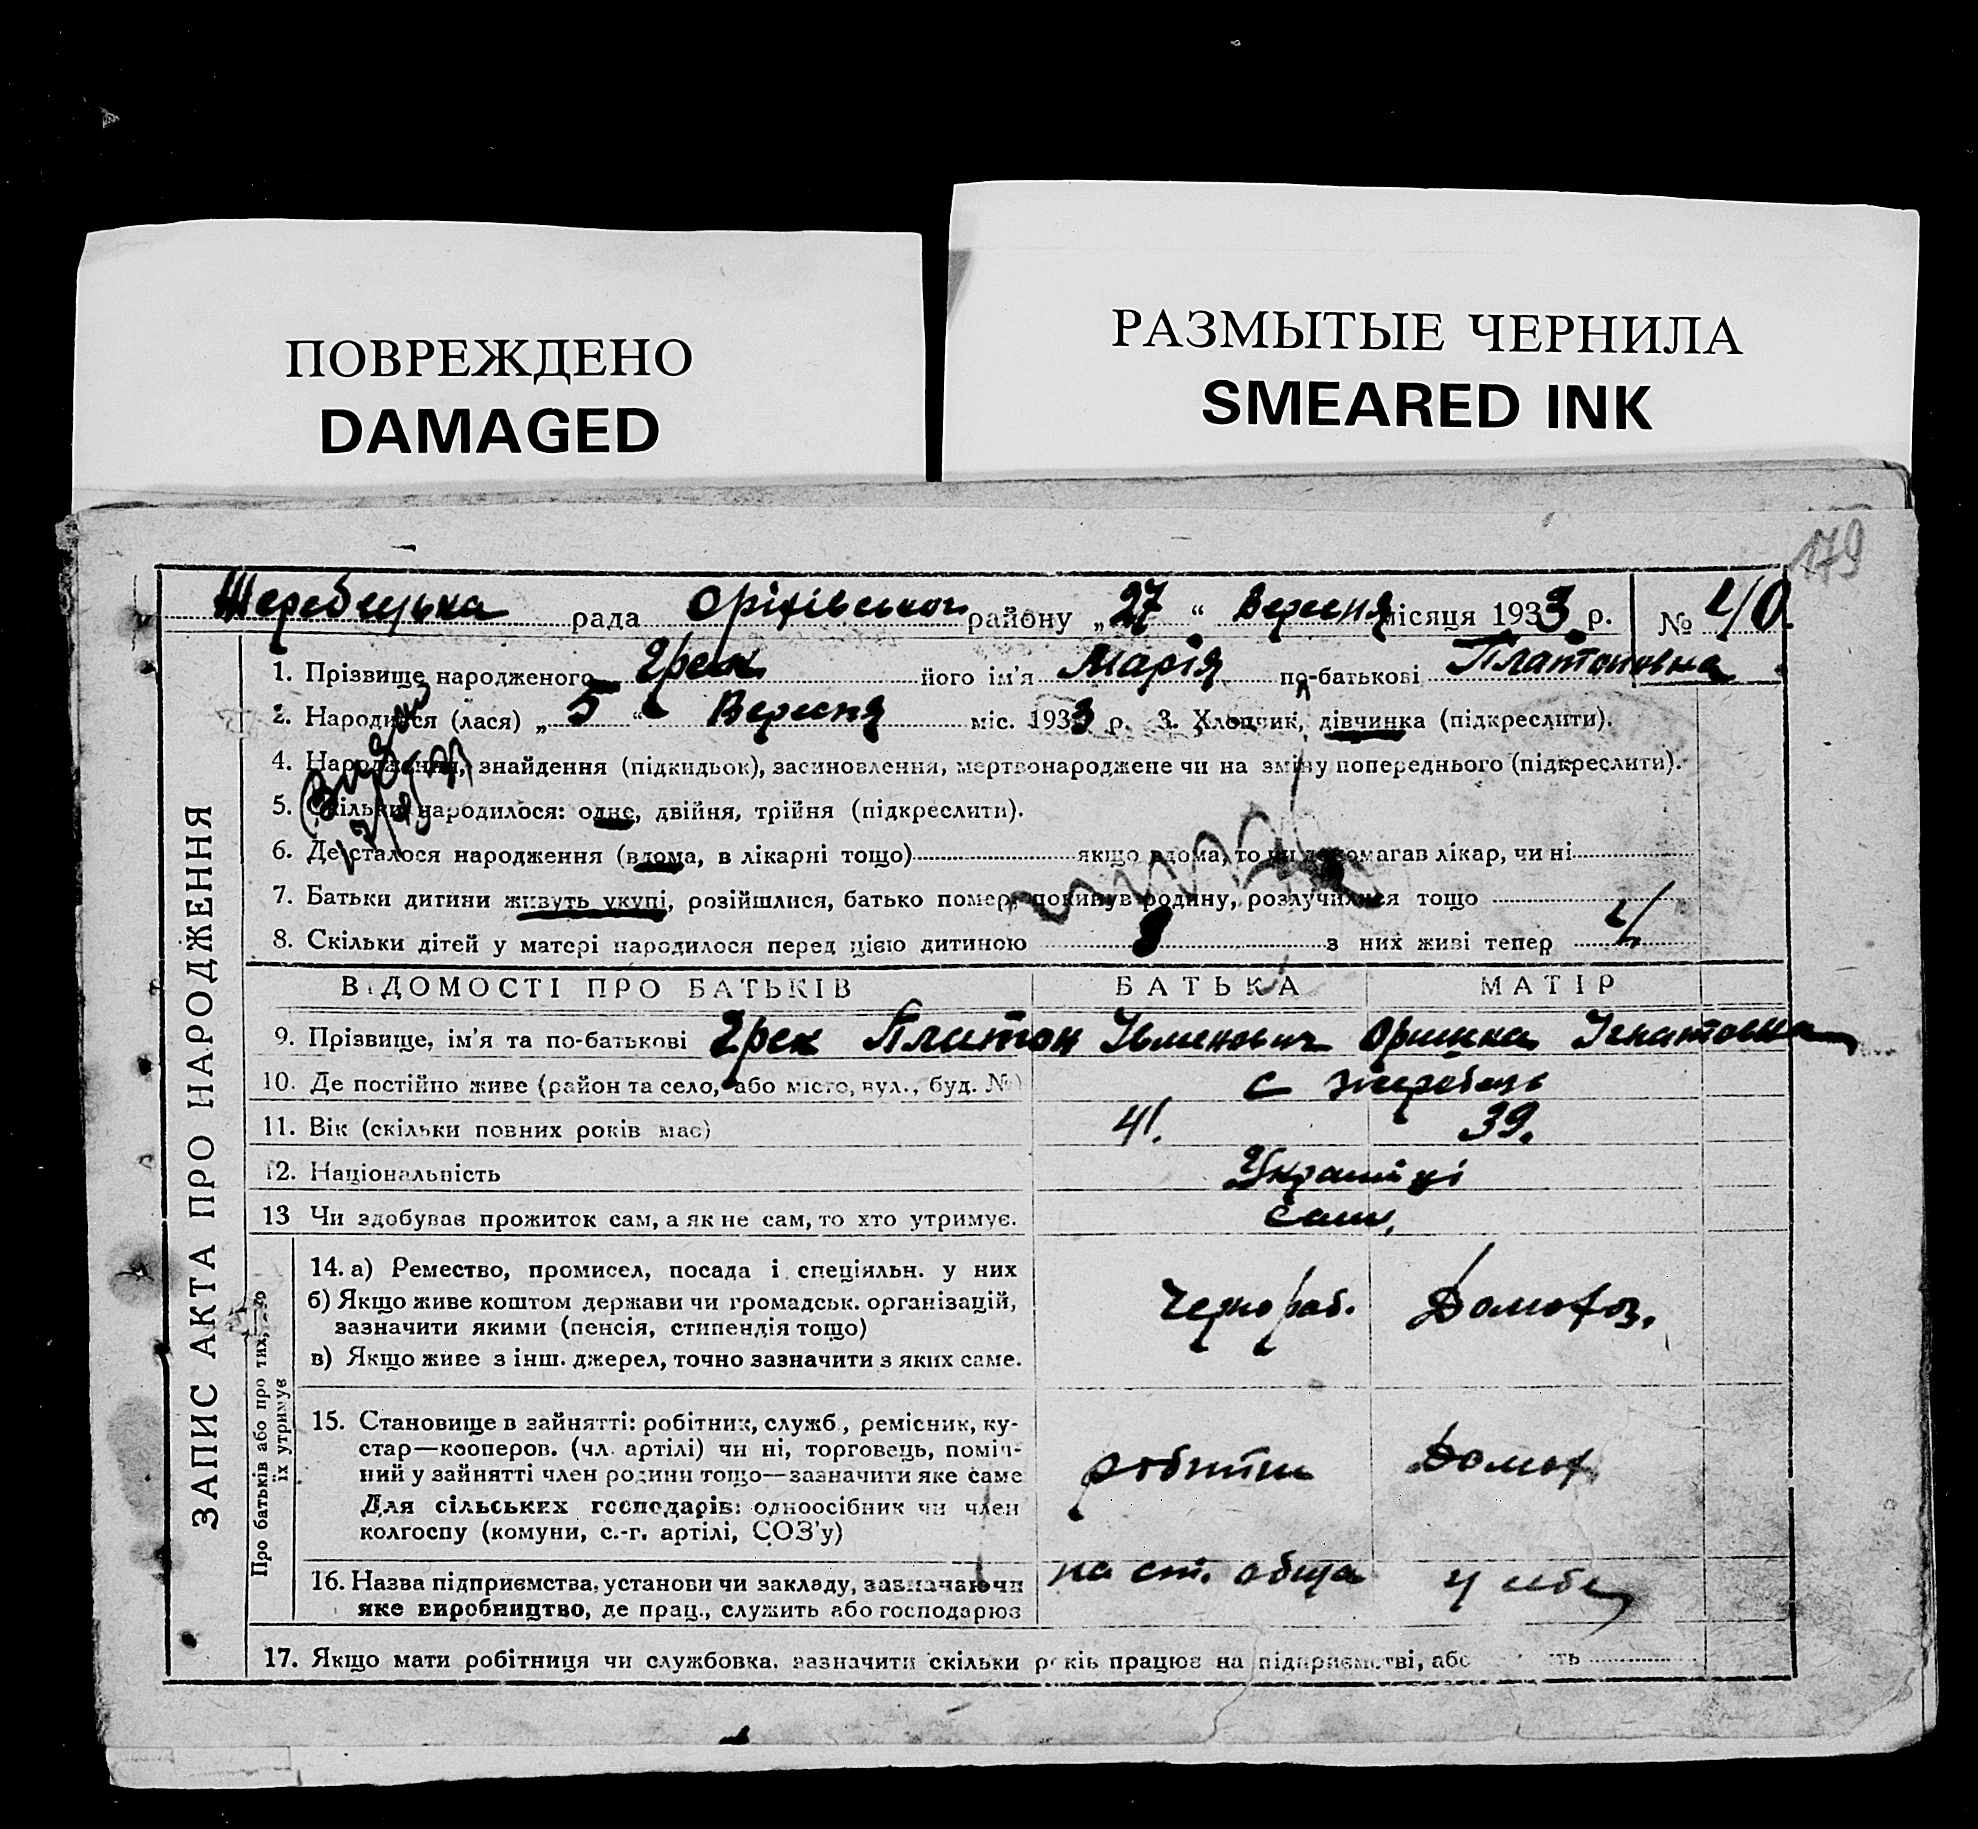 ПОВРЕЖДЕНО
DAMAGED
РАЗМЫТЫЕ ЧЕРНИЛА
SMEARED INK
179
Жеребецька рада Оріхівського району „27“ Вересня місяця 1933 р. № 40
ЗАПИС АКТА ПРО НАРОДЖЕННЯ
1. Прізвище народженого Грек його ім'я Марія по-батькові Платоновна
2. Народився (лася) „5“ Вересня міс. 1933 р. 3. Хлопчик, дівчинка (підкреслити).
4. Народження, знайдення (підкидьок), засиновлення, мертвонароджене чи на зміну попереднього (підкреслити).
5. Скільки народилося: одне, двійня, трійня (підкреслити).
6. Де сталося народження (вдома, в лікарні тощо) якщо вдома, то чи допомагав лікар, чи ні
7. Батьки дитини живуть укупі, розійшлися, батько помер, покинув родину, розлучилися тощо
8. Скільки дітей у матері народилося перед цією дитиною 8 з них живі тепер 4
ВІДОМОСТІ ПРО БАТЬКІВ БАТЬКА МАТІР
9. Прізвище, ім'я та по-батькові Грек Платон Овменович Оришка Игнатовна
10. Де постійно живе (район та село, або місто, вул., буд. №) с Жеребець
11. Вік (скільки повних років має) 41. 39.
12. Національність Українці
13 Чи здобував прожиток сам, а як не сам, то хто утримує. Сами,
Про батьків або про тих, хто їх утримує
14. а) Ремество, промисел, посада і спеціяльн. у них
б) Якщо живе коштом держави чи громадськ. організацій,
зазначити якими (пенсія, стипендія тощо)
в) Якщо живе з інш. джерел, точно зазначити з яких саме.
Чернораб. Домохоз.
15. Становище в зайнятті: робітник, служб., ремісник, ку-
стар—кооперов. (чл. артілі) чи ні, торговець, поміч-
ний у зайнятті член родини тощо—зазначити яке саме
Для сільських господарів: одноосібник чи член
колгоспу (комуни, с.-г. артілі, СОЗ'у)
робітник Домох
16. Назва підприємства, установи чи закладу, зазначаючи
яке виробництво, де прац., служить або господарює
на ст. обща у себе
17. Якщо мати робітниця чи службовка, зазначити скільки років працює на підприємстві, або